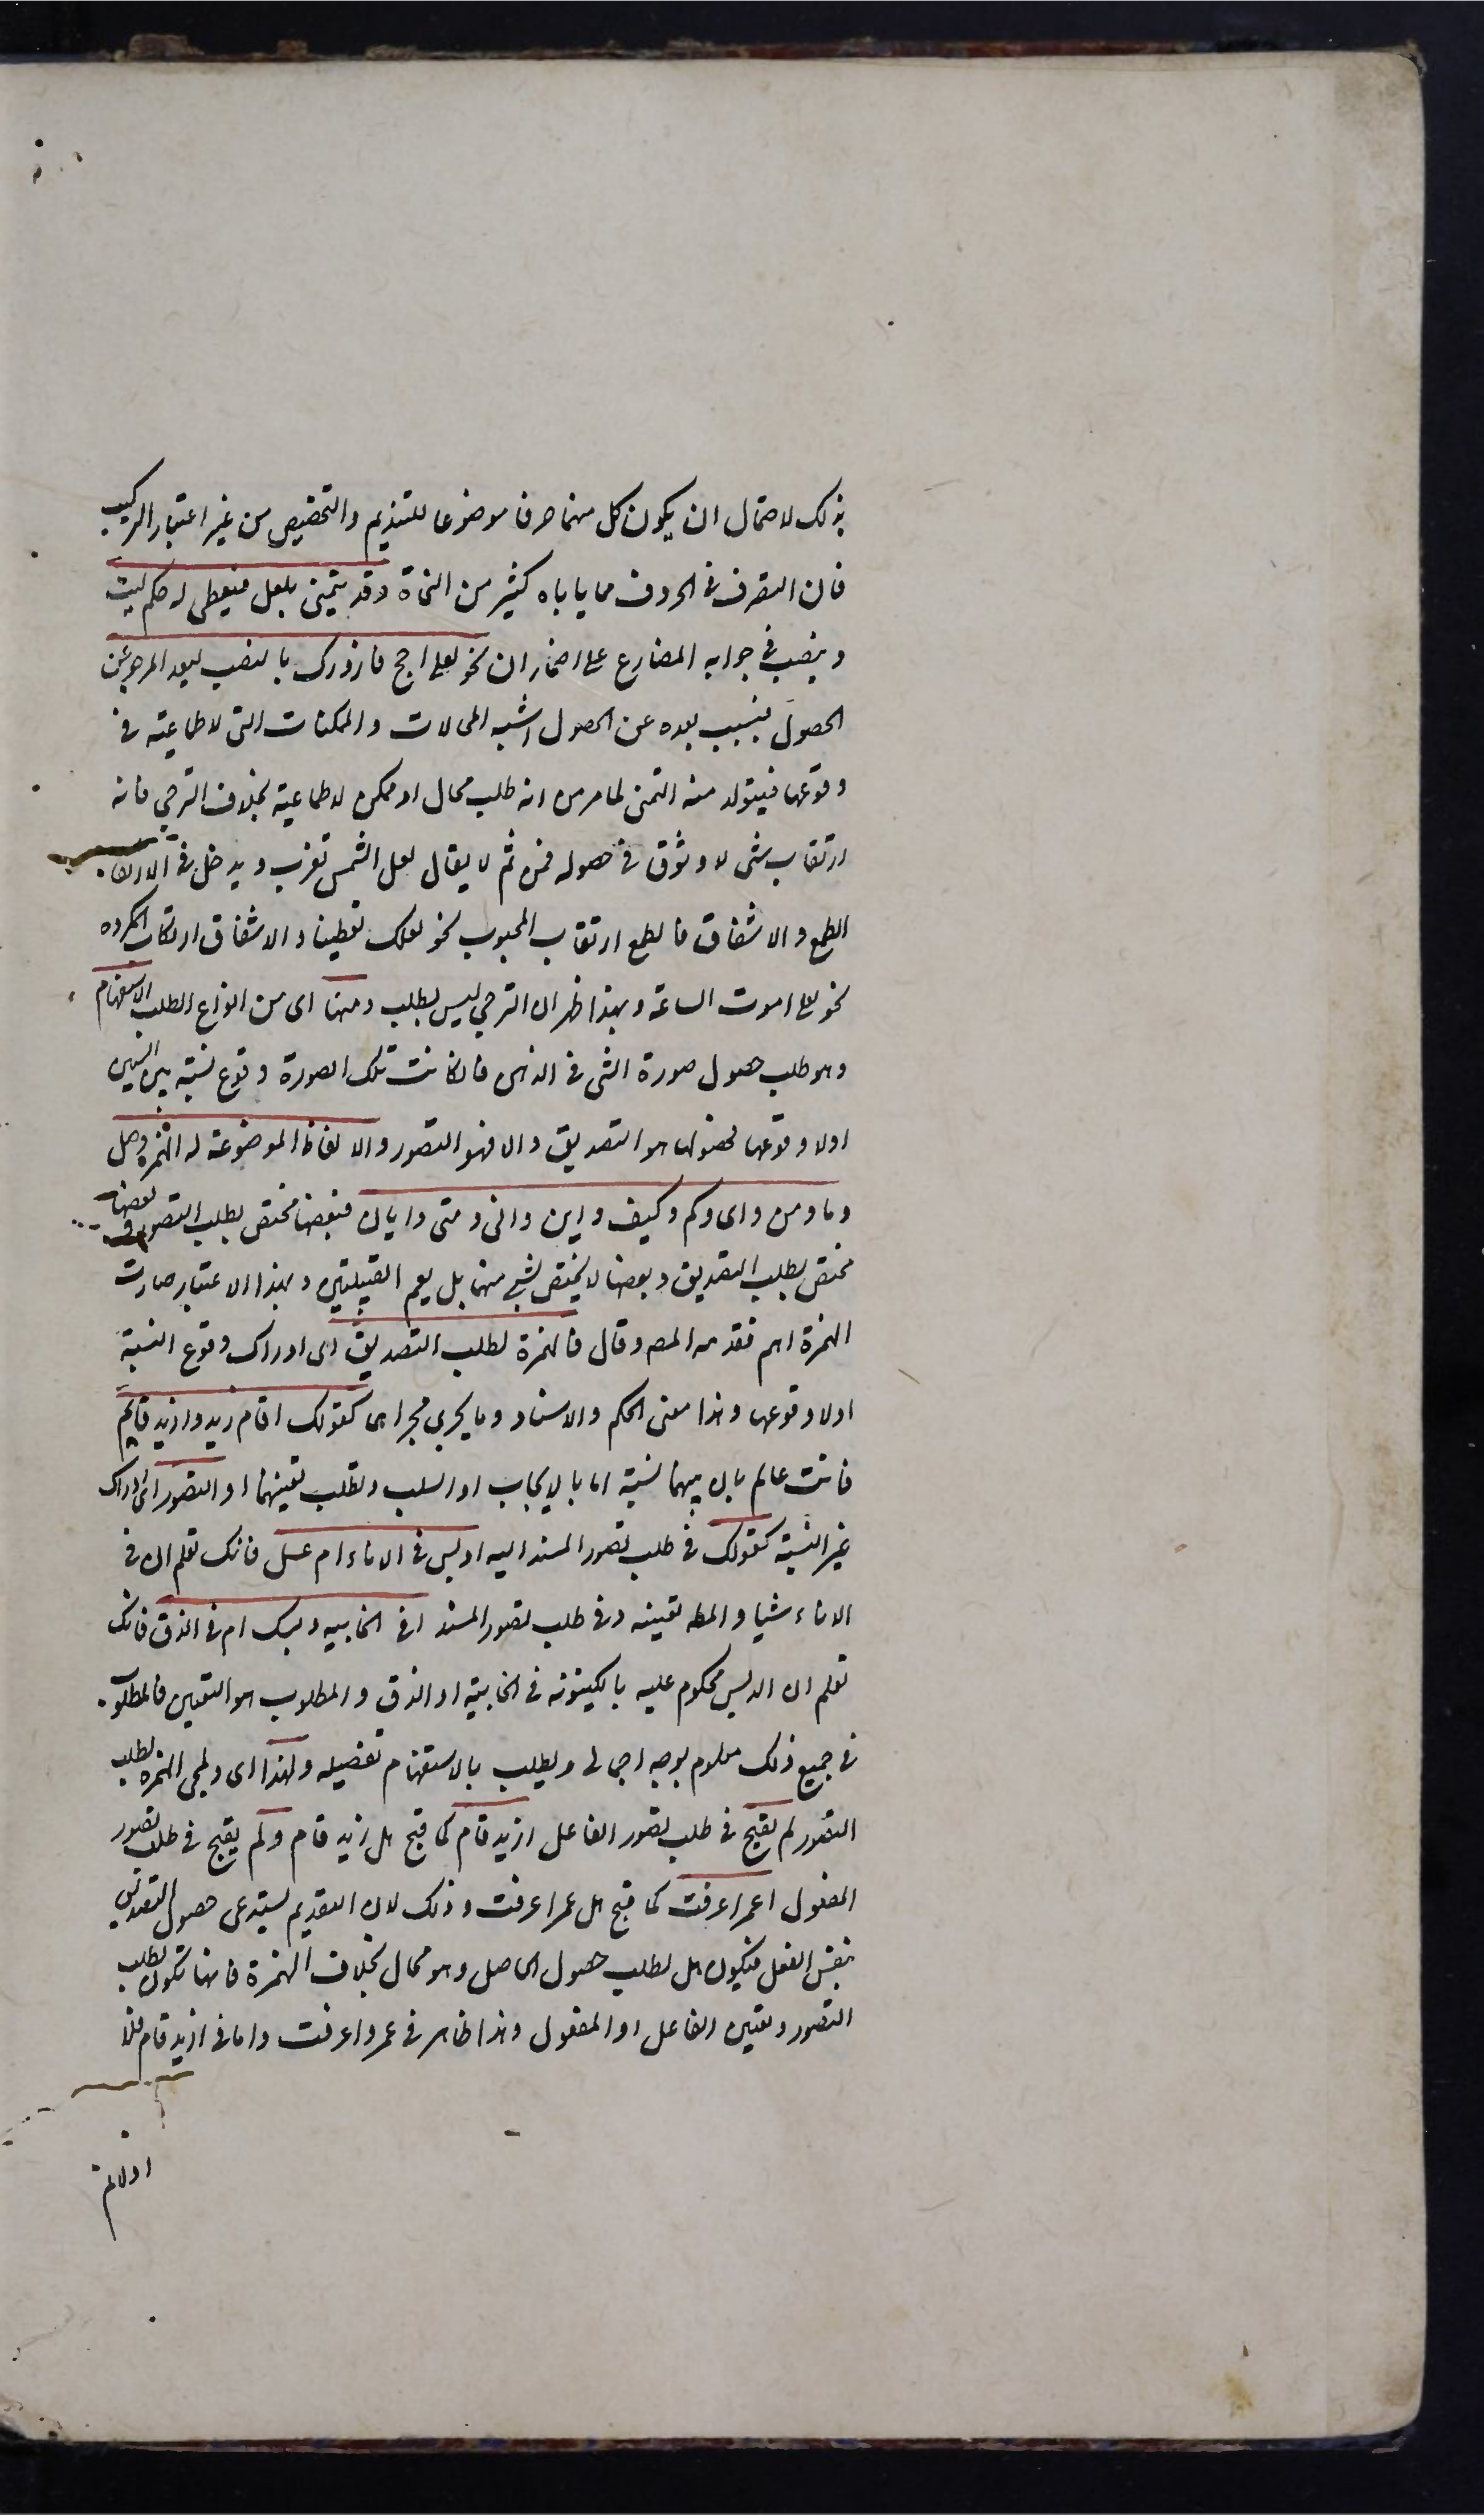 بذلك لاحتمال ان يكون كل منهما حرفا موضوعا للتنديم والتحضيض من غير اعتبار التركيب
فان التصرف في الحروف مما ياباه كثير من النحاة وقد يتمنى بلعل فيعطى له حكم ليت
وينصب في جوابه المضارع على اضمار ان نحو لعلي احج فازورك بالنصب لبعد المرجو عن
الحصول فبسبب بعده عن الحصول اشبه المحالات والممكنات التي لا طماعية في
وقوعها فيتولد منه التمني لما مر من انه طلب محال او ممكن لا طماعية بخلاف الترجي فانه
ارتقاب شئ لا وثوق في حصوله فمن ثم لا يقال لعل الشمس تغرب ويدخل في الارتقاب
الطمع والاشفاق فالطمع ارتقاب المحبوب نحو لعلك تعطينا والاشفاق ارتقاب المكروه
نحو لعلي اموت الساعة وبهذا ظهر ان الترجي ليس بطلب ومنها اى من انواع الطلب الاستفهام
وهو طلب حصول صورة الشئ في الذهن فان كانت تلك الصورة وقوع نسبة بين الشيئين
اولا وقوعها فحصولها هو التصديق والا فهو التصور والالفاظ الموضوعة له الهمزة وهل
وما ومن واى وكم وكيف واين وانى ومتى وايان فبعضها مختص بطلب التصور وبعضها
مختص بطلب التصديق وبعضها لا يختص بشئ منهما بل يعم القبيلتين وبهذا الاعتبار صارت
الهمزة اهم فقدمه المصـ وقال فالهمزة لطلب التصديق اى ادراك وقوع النسبة
اولا وقوعها وهذا معنى الحكم والاسناد وما يجري مجراهما كقولك اقام زيد وازيد قايم
فانت عالم بان بينهما نسبة اما بالايجاب او السلب وتطلب تعيينها او التصور اى ادراك
غير النسبة كقولك في طلب تصور المسند اليه ادبس في الاناء ام عسل فانك تعلم ان في
الاناء شيا والمطـ تعيينه وفي طلب تصور المسند افي الخابيه دبسك ام في الزق فانك
تعلم ان الدبس محكوم عليه بالكينونة في الخابية او الزق والمطلوب هو التعيين فالمطلوب
في جميع ذلك معلوم بوجه اجمالى ويطلب بالاستفهام تفصيله ولهذا اى ولمجئ الهمزة لطلب
التصور لم يقبح في طلب تصور الفاعل ازيد قام كما قبح هل زيد قام ولم يقبح في طلب تصور
المفعول اعمرا عرفت كما قبح هل عمرا عرفت وذلك لان التقديم يستدعى حصول التصديق
بنفس الفعل فيكون هل لطلب حصول الحاصل وهو محال بخلاف الهمزة فانها تكون لطلب
التصور وتعيين الفاعل او المفعول وهذا ظاهر في عمروا عرفت واما في ازيد قام فلا